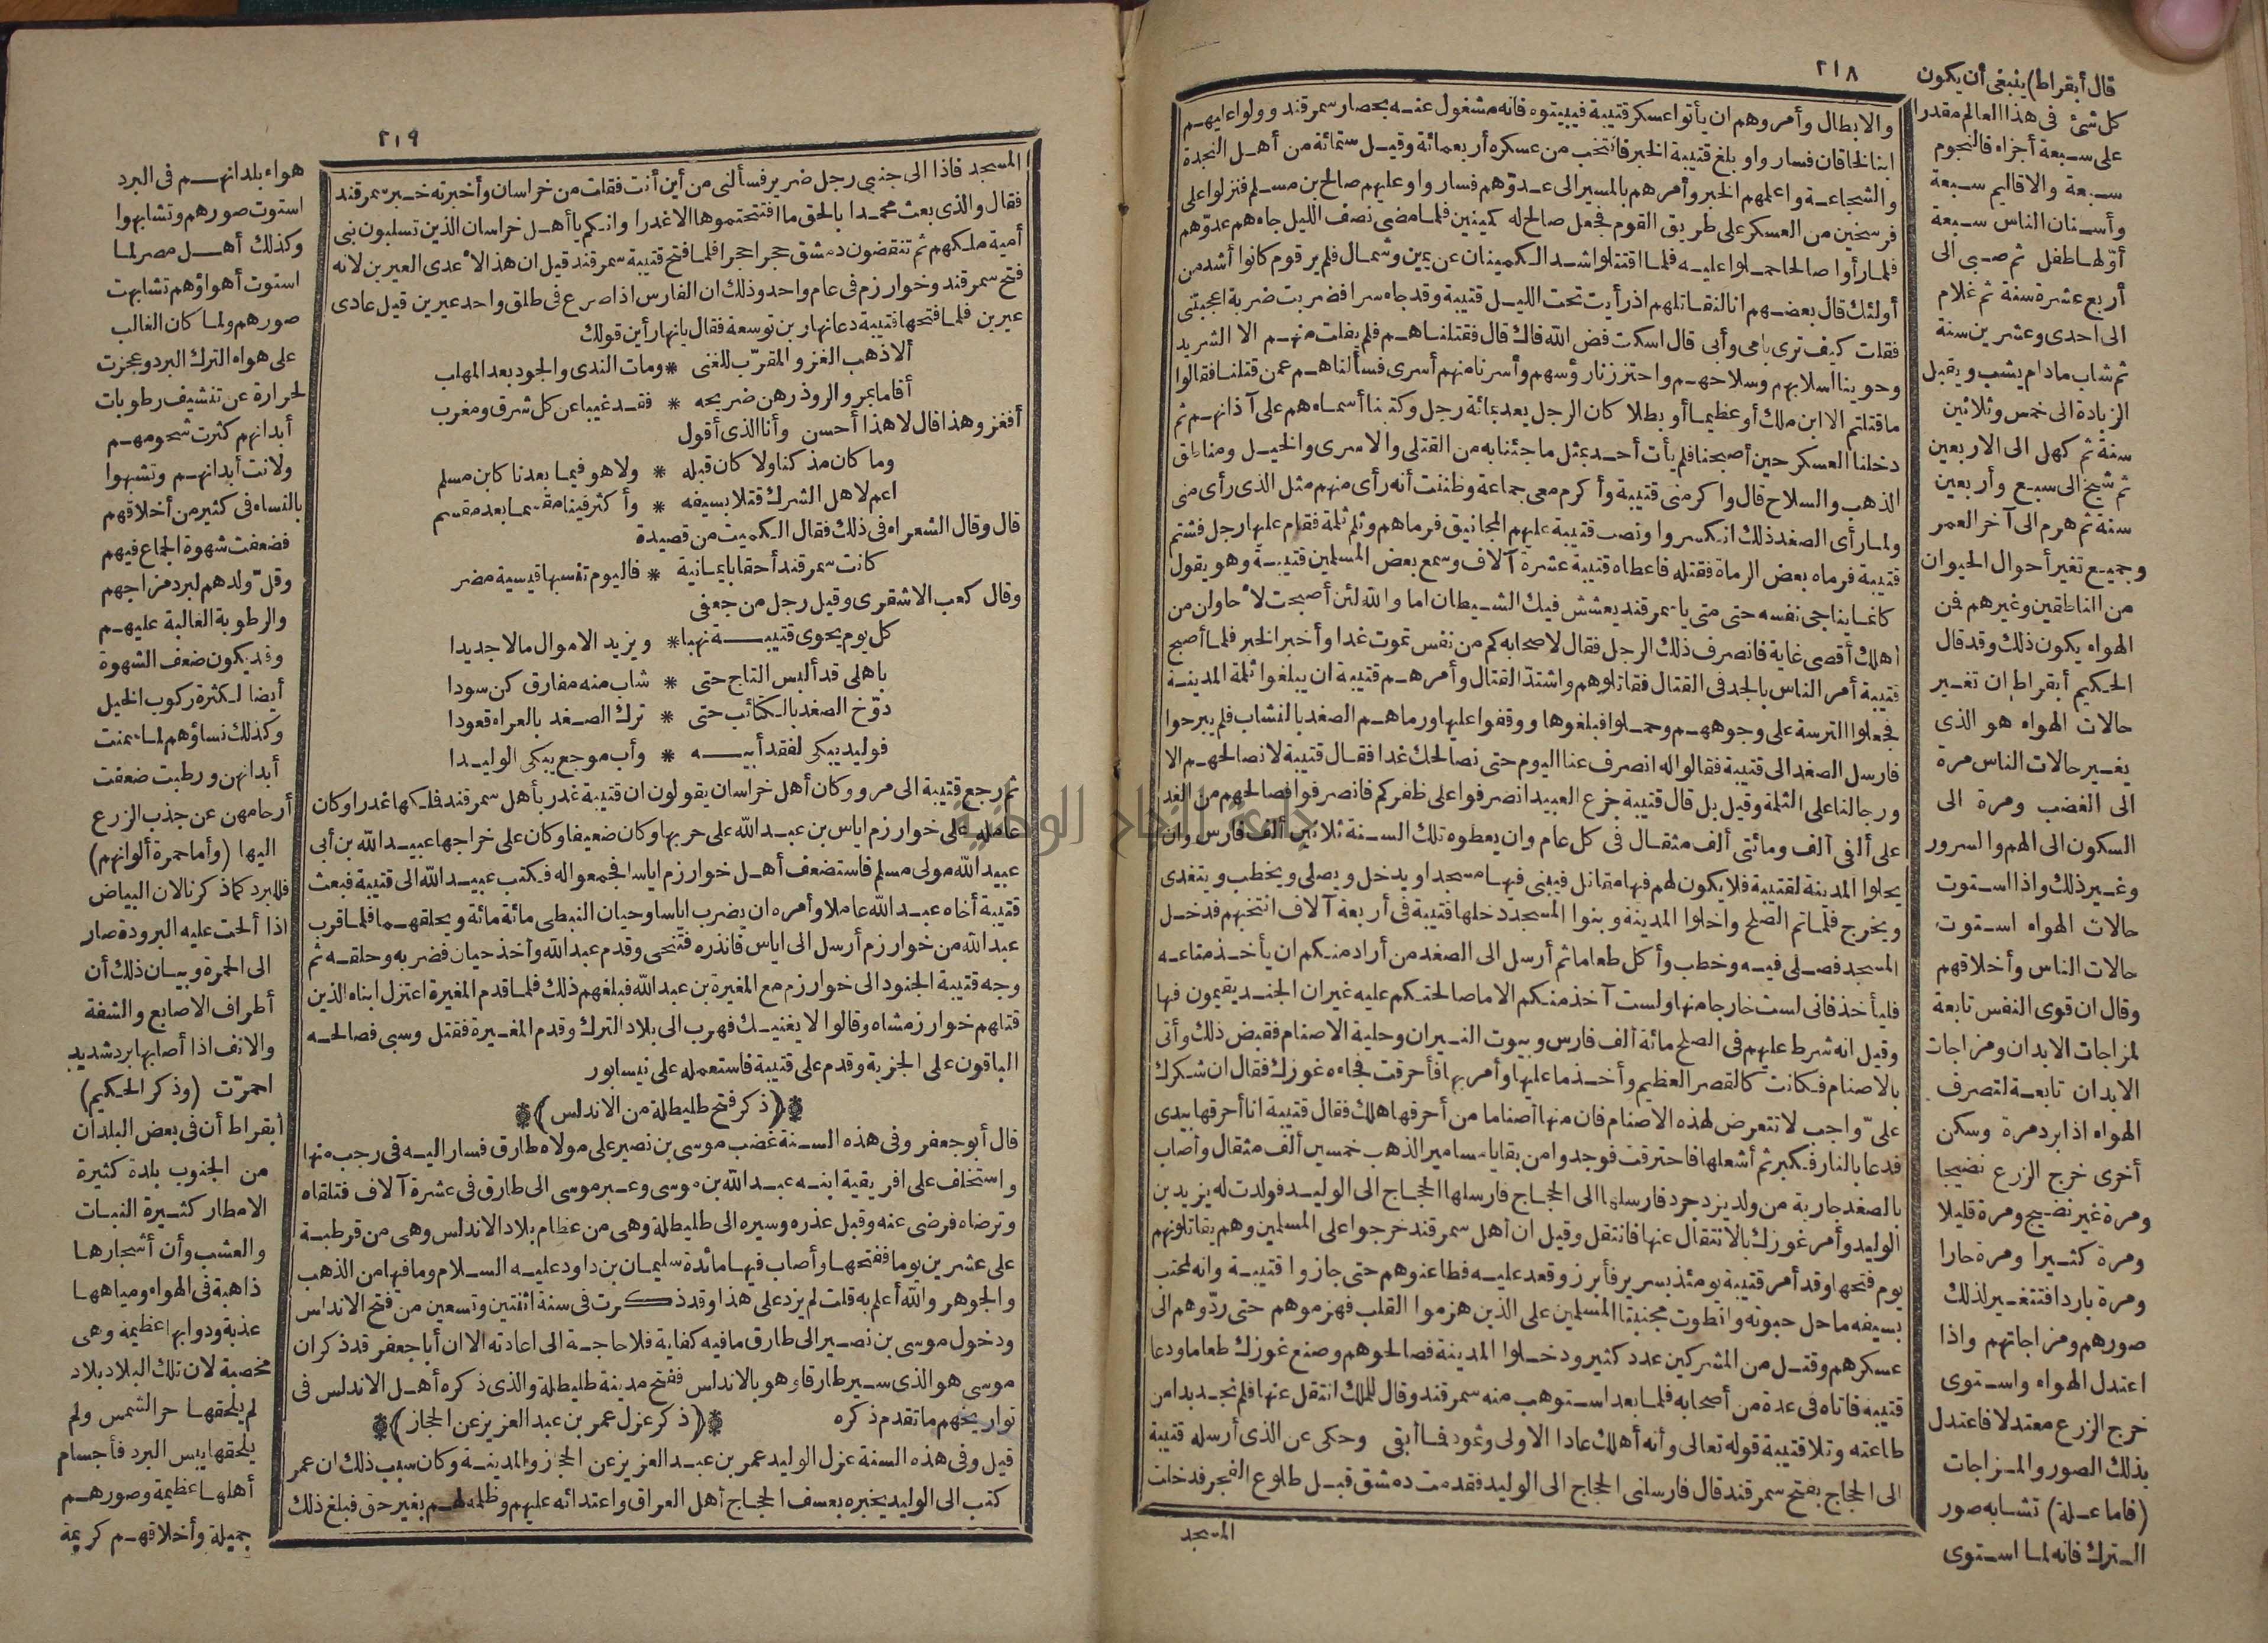 ٢١٨
والابطال وأمروهم ان يأتوا عسكر قتيبة فيبيتوه فانه مشغول عنه بحصار سمرقند وولوا عليهم
ابنا لخاقان فساروا وبلغ قتيبة الخبر فانتخب من عسكره أربعمائة وقيل ستمائة من أهل النجدة
والشجاعة واعلمهم الخبر وأمرهم بالمسير الى عدوّهم فساروا وعليهم صالح بن مسلم فنزلوا على
فرسخين من العسكر على طريق القوم فجعل صالح له كمينين فلما مضى نصف الليل جاءهم عدوّهم
فلما رأوا صالحا حملوا عليه فلما اقتتلوا شد الكمينان عن يمين وشمال فلم ير قوم كانوا أشد من
أولئك قال بعضهم انا لنقاتلهم اذ رأيت تحت الليل قتيبة وقد جاء سرا فضربت ضربة اعجبتنى
فقلت كيف ترى بامى وأبى قال اسكت فض الله فاك قال فقتلناهم فلم يفلت منهم الا الشريد
وحوينا اسلابهم وسلاحهم واحتززنا رؤسهم وأسرنا منهم أسرى فسألناهم عمن قتلنا فقالوا
ما قتلتم الا ابن ملك أو عظيما أو بطلا كان الرجل يعد بمائة رجل وكتبنا أسماءهم على آذانهم ثم
دخلنا العسكر حين أصبحنا فلم يأت أحد بمثل ما جئنا به من القتلى والاسرى والخيل ومناطق
الذهب والسلاح قال واكرمنى قتيبة وأكرم معى جماعة وظننت أنه رأى منهم مثل الذى رأى منى
ولما رأى الصغد ذلك انكسروا ونصب قتيبة عليهم المجانيق فرماهم وثلم ثلمة فقام عليها رجل فشتم
قتيبة فرماه بعض الرماة فقتله فاعطاه قتيبة عشرة آلاف وسمع بعض المسلمين قتيبة وهو يقول
كانما يناجى نفسه حتى متى يا سمرقند يعشش فيك الشيطان اما والله لئن أصبحت لأحاولن من
اهلك أقصى غاية فانصرف ذلك الرجل فقال لاصحابه كم من نفس تموت غدا وأخبر الخبر فلما أصبح
قتيبة أمر الناس بالجد فى القتال فقاتلوهم واشتدّ القتال وأمرهم قتيبة ان يبلغوا ثلمة المدينة
فجعلوا الترسة على وجوههم وحملوا فبلغوها ووقفوا عليها ورماهم الصغد بالنشاب فلم يبرحوا
فارسل الصغد الى قتيبة فقالوا له انصرف عنا اليوم حتى نصالحك غدا فقال قتيبة لا نصالحهم الا
ورجالنا على الثلمة وقيل بل قال قتيبة جزع العبيد انصرفوا على ظفركم فانصرفوا فصالحهم من الغد
على ألفى ألف ومائتى ألف مثقال فى كل عام وان يعطوه تلك السنة ثلاثين ألف فارس وان
يخلوا المدينة لقتيبة فلا يكون لهم فيها مقاتل فيبنى فيها مسجدا ويدخل ويصلى ويخطب ويتغدى
ويخرج فلما تم الصلح واخلوا المدينة وبنوا المسجد دخلها قتيبة فى أربعة آلاف انتخبهم فدخل
المسجد فصلى فيه وخطب وأكل طعاما ثم أرسل الى الصغد من أراد منكم ان يأخذ متاعه
فليأخذ فانى لست خارجا منها ولست آخذ منكم الا ما صالحتكم عليه غير ان الجند يقيمون فيها
وقيل انه شرط عليهم فى الصلح مائة ألف فارس وبيوت النيران وحلية الاصنام فقبض ذلك وأتى
بالاصنام فكانت كالقصر العظيم وأخذ ما عليها وأمر بها فأحرقت فجاءه غوزك فقال ان شكرك
علىّ واجب لا تتعرض لهذه الاصنام فان منها أصناما من أحرقها هلك فقال قتيبة انا أحرقها بيدى
فدعا بالنار فكبر ثم أشعلها فاحترقت فوجدوا من بقايا مسامير الذهب خمسين ألف مثقال وأصاب
بالصغد جارية من ولد يزدجرد فارسلها الى الحجاج فارسلها الحجاج الى الوليد فولدت له يزيد بن
الوليد وأمر غوزك بالانتقال عنها فانتقل وقيل ان أهل سمرقند خرجوا على المسلمين وهم يقاتلونهم
يوم فتحها وقد أمر قتيبة يومئذ بسرير فأبرز وقعد عليه فطاعنوهم حتى جازوا قتيبة وانه لمحتب
بسيفه ما حل حبوته وانطوت مجنبتا المسلمين على الذين هزموا القلب فهزموهم حتى ردّوهم الى
عسكرهم وقتل من المشركين عدد كثير ودخلوا المدينة فصالحوهم وصنع غوزك طعاما ودعا
قتيبة فاتاه فى عدة من أصحابه فلما بعد استوهب منه سمرقند وقال للملك انتقل عنها فلم نجد بدا من
طاعته وتلا قتيبة قوله تعالى وأنه أهلك عادا الاولى وثمود فما أبقى وحكى عن الذى أرسله قتيبة
الى الحجاج بفتح سمرقند قال فارسلنى الحجاج الى الوليد فقدمت دمشق قبل طلوع الفجر فدخلت
المسجد
قال أبقراط) ينبغى أن يكون
كل شئ فى هذا العالم مقدرا
على سبعة أجزاء فالنجوم
سبعة والاقاليم سبعة
وأسنان الناس سبعة
أوّلها طفل ثم صبى الى
أربع عشرة سنة ثم غلام
الى احدى وعشرين سنة
ثم شاب مادام يشب ويقبل
الزيادة الى خمس وثلاثين
سنة ثم كهل الى الاربعين
ثم شيخ الى سبع وأربعين
سنة ثم هرم الى آخر العمر
وجميع تغير أحوال الحيوان
من الناطقين وغيرهم فن
الهواء يكون ذلك وقد قال
الحكيم أبقراط ان تغير
حالات الهواء هو الذى
يغير حالات الناس مرة
الى الغضب ومرة الى
السكون الى الهم والسرور
وغير ذلك واذا استوت
حالات الهواء استوت
حالات الناس وأخلاقهم
وقال ان قوى النفس تابعة
لمزاجات الابدان ومزاجات
الابدان تابعة لتصرف
الهواء اذا برد مرة وسكن
أخرى خرج الزرع نضيجا
ومرة غير نضيج ومرة قليلا
ومرة كثيرا ومرة حارا
ومرة باردا فتتغير لذلك
صورهم ومزاجاتهم واذا
اعتدل الهواء واستوى
خرج الزرع معتدلا فاعتدل
بذلك الصور والمزاجات
(فاما علة) تشابه صور
الترك فانه لما استوى
٢١٩
المسجد فاذا الى جنبى رجل ضرير فسألنى من أين أنت فقلت من خراسان وأخبرته خبر سمرقند
فقال والذى بعث محمدا بالحق ما افتتحتموها الا غدرا وانكم يا أهل خراسان الذين تسلبون بنى
أمية ملكهم ثم تنقضون دمشق حجرا حجرا فلما فتح قتيبة سمرقند قيل ان هذا الأعدى العيرين لانه
فتح سمرقند وخوارزم فى عام واحد وذلك ان الفارس اذا صرع فى طلق واحد عيرين قيل عادى
عيرين فلما فتحها قتيبة دعا نهار بن توسعة فقال يا نهار أين قولك
ألا ذهب الغزو المقرّب للغنى * ومات الندى والجود بعد المهلب
أقاما بمرو الروذ رهن ضريحه * فقد غيبا عن كل شرق ومغرب
أفغزو هذا قال لا هذا أحسن وأنا الذى أقول
وما كان مذ كنا ولا كان قبله * ولا هو فيما بعدنا كابن مسلم
اعم لاهل الشرك قتلا بسيفه * وأكثر فينا مقسما بعد مقسم
قال وقال الشعراء فى ذلك فقال الكميت من قصيدة
كانت سمرقند أحقابا يمانية * فاليوم تنسبها قيسية مضر
وقال كعب الاشقرى وقيل رجل من جعفى
كل يوم يحوى قتيبة نهبا * ويزيد الاموال مالا جديدا
باهلى قد ألبس التاج حتى * شاب منه مفارق كن سودا
دوّخ الصغد بالكتائب حتى * ترك الصغد بالعراء قعودا
فوليد يبكى لفقد أبيه * وأب موجع يبكى الوليدا
ثم رجع قتيبة الى مرو وكان أهل خراسان يقولون ان قتيبة غدر بأهل سمرقند فملكها غدرا وكان
عامله على خوارزم اياس بن عبد الله على حربها وكان ضعيفا وكان على خراجها عبيد الله بن أبى
عبيد الله مولى مسلم فاستضعف أهل خوارزم اياسا فجمعوا له فكتب عبيد الله الى قتيبة فبعث
قتيبة أخاه عبد الله عاملا وأمره ان يضرب اياسا وحيان النبطى مائة مائة ويحلقهما فلما قرب
عبد الله من خوارزم أرسل الى اياس فانذره فتنحى وقدم عبد الله وأخذ حيان فضربه وحلقه ثم
وجه قتيبة الجنود الى خوارزم مع المغيرة بن عبد الله فبلغهم ذلك فلما قدم المغيرة اعتزل ابناء الذين
قتلهم خوارزمشاه وقالوا لا يغنيك فهرب الى بلاد الترك وقدم المغيرة فقتل وسبى فصالحه
الباقون على الجزية وقدم على قتيبة فاستعمله على نيسابور
*(ذكر فتح طليطلة من الاندلس)*
قال أبو جعفر وفى هذه السنة غضب موسى بن نصير على مولاه طارق فسار اليه فى رجب منها
واستخلف على افريقية ابنه عبد الله بن موسى وعبر موسى الى طارق فى عشرة آلاف فتلقاه
وترضاه فرضى عنه وقبل عذره وسيره الى طليطلة وهى من عظام بلاد الاندلس وهى من قرطبة
على عشرين يوما ففتحها وأصاب فيها مائدة سليمان بن داود عليه السلام وما فيها من الذهب
والجوهر والله أعلم به قلت لم يزد على هذا وقد ذكرت فى سنة اثنتين وتسعين من فتح الاندلس
ودخول موسى بن نصير الى طارق ما فيه كفاية فلا حاجة الى اعادته الا ان أبا جعفر قد ذكر ان
موسى هو الذى سير طارقا وهو بالاندلس ففتح مدينة طليطلة والذى ذكره أهل الاندلس فى
تواريخهم ما تقدم ذكره *(ذكر عزل عمر بن عبد العزيز عن الحجاز)*
قيل وفى هذه السنة عزل الوليد عمر بن عبد العزيز عن الحجاز والمدينة وكان سبب ذلك ان عمر
كتب الى الوليد يخبره بعسف الحجاج أهل العراق واعتدائه عليهم وظلمه لهم بغير حق فبلغ ذلك
هواء بلدانهم فى البرد
استوت صورهم وتشابهوا
وكذلك أهل مصر لما
استوت أهواؤهم تشابهت
صورهم ولما كان الغالب
على هواء الترك البرد وعجزت
لحرارة عن تنشيف رطوبات
أبدانهم كثرت شحومهم
ولانت أبدانهم وتشبهوا
بالنساء فى كثير من أخلاقهم
فضعفت شهوة الجماع فيهم
وقلّ ولدهم لبرد مزاجهم
والرطوبة الغالبة عليهم
وقد يكون ضعف الشهوة
أيضا لكثرة ركوب الخيل
وكذلك نساؤهم لما سمنت
أبدانهن ورطبت ضعفت
أرحامهن عن جذب الزرع
اليها (وأما حمرة ألوانهم)
فللبرد كما ذكرنا لان البياض
اذا ألحت عليه البرودة صار
الى الحمرة وبيان ذلك أن
أطراف الاصابع والشفة
والانف اذا أصابها برد شديد
احمرّت (وذكر الحكيم)
أبقراط أن فى بعض البلدان
من الجنوب بلدة كثيرة
الامطار كثيرة النبات
والعشب وأن أشجارها
ذاهبة فى الهواء ومياهها
عذبة ودوابها عظيمة وهى
مخصبة لان تلك البلاد بلاد
لم يلحقها حر الشمس ولم
يلحقها يبس البرد فأجسام
أهلها عظيمة وصورهم
جميلة وأخلاقهم كريمة
جامعة النجاح الوطنية